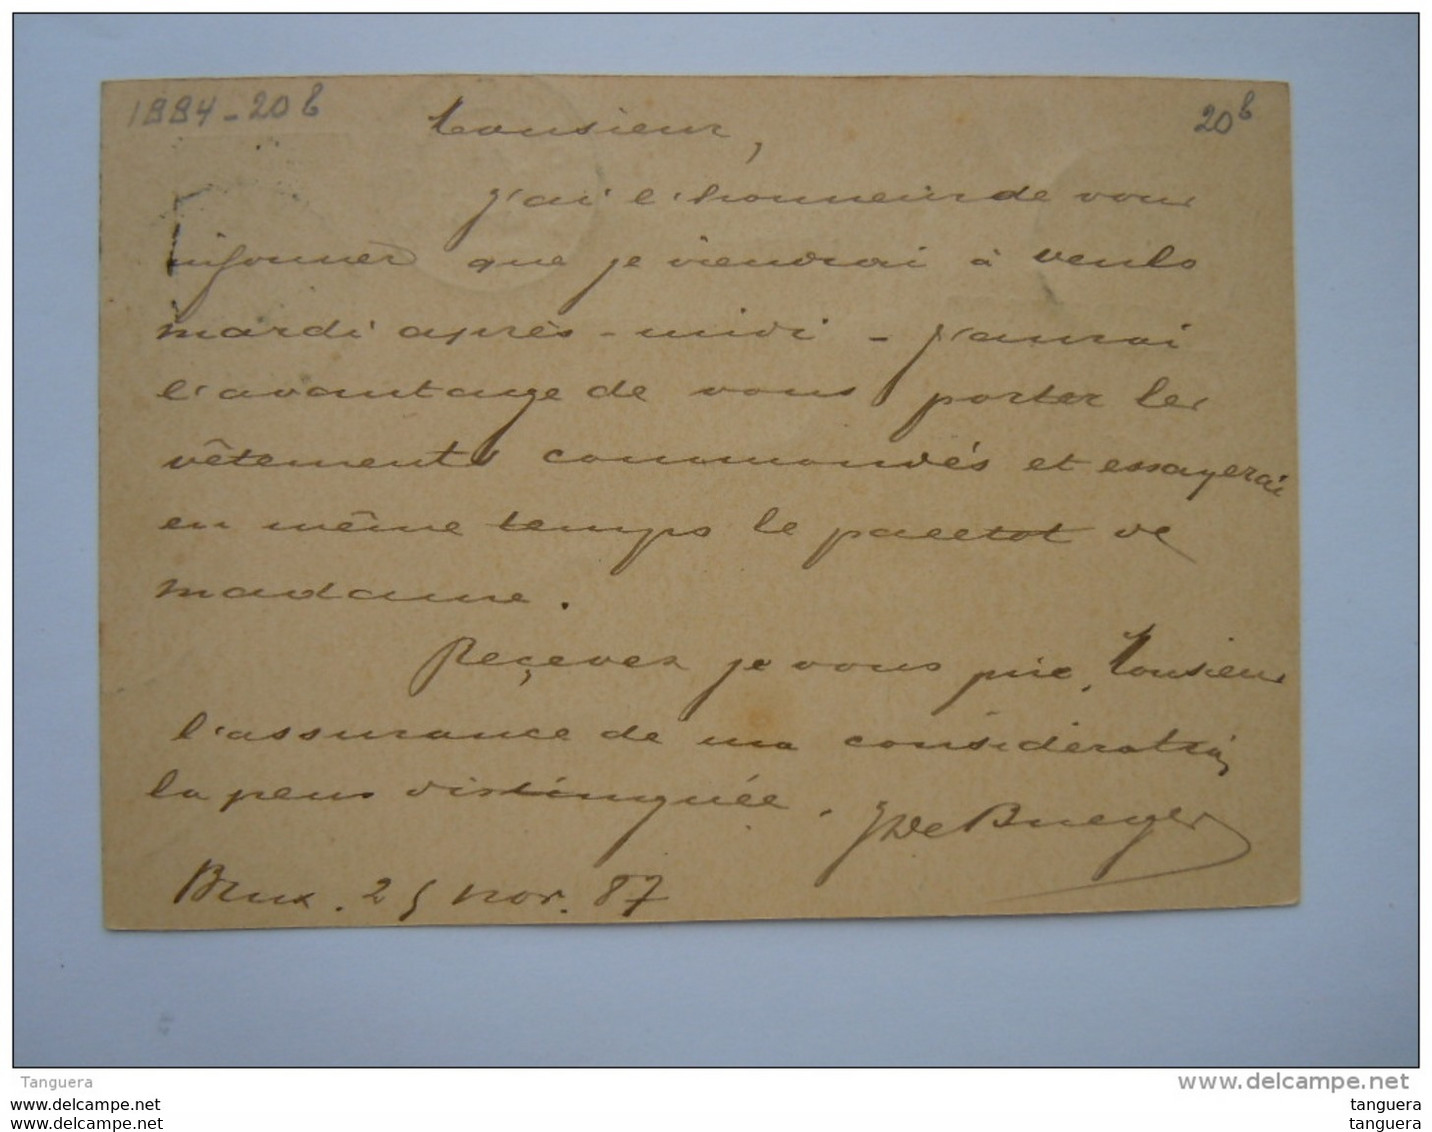 1884 - 20 b
20 b
Monsieur,
j'ai l'honneur de vous
informer que je viendrai à venlo
mardi après-midi - j'aurai
l'avantage de vous porter les
vêtements commandés et essayerai
en même temps le paletot de
madame.
Recevez je vous prie, Monsieur
l'assurance de ma considération
la plus distinguée.
Brux. 25 nov. 87
Tanguera
www.delcampe.net
www.delcampe.net
www.delcampe.net
tanguera
tanguera